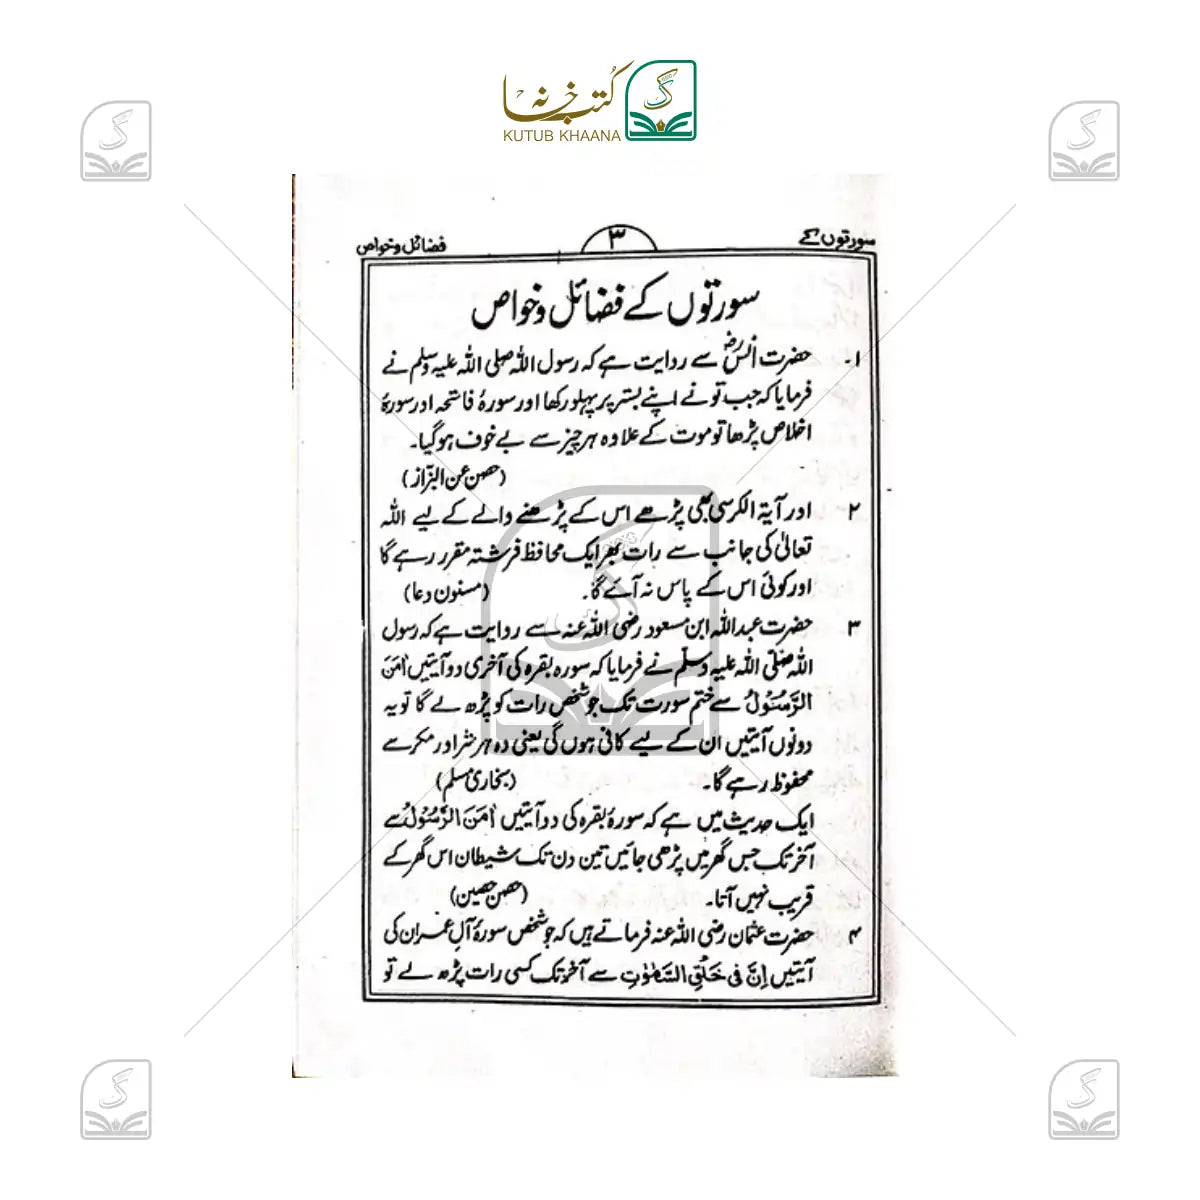 کتب خانہ
KUTUB KHAANA
سورتوں کے
۳
فضائل وخواص
سورتوں کے فضائل وخواص
۱۔ حضرت انسؓ سے روایت ہے کہ رسول اللہ صلی اللہ علیہ وسلم نے
فرمایا کہ جب تو نے اپنے بستر پر پہلو رکھا اور سورۂ فاتحہ اور سورۂ
اخلاص پڑھا تو موت کے علاوہ ہر چیز سے بے خوف ہو گیا۔
(حصن عن البزاز)
۲ اور آیۃ الکرسی بھی پڑھے اس کے پڑھنے والے کے لیے اللہ
تعالیٰ کی جانب سے رات بھر ایک محافظ فرشتہ مقرر رہے گا
اور کوئی اس کے پاس نہ آئے گا۔ (مسنون دعا)
۳ حضرت عبداللہ ابن مسعود رضی اللہ عنہ سے روایت ہے کہ رسول
اللہ صلی اللہ علیہ وسلم نے فرمایا کہ سورہ بقرہ کی آخری دو آیتیں اٰمَنَ
الرَّسُوْلُ سے ختم سورت تک جو شخص رات کو پڑھ لے گا تو یہ
دونوں آیتیں ان کے لیے کافی ہوں گی یعنی وہ ہر شر اور مکر سے
محفوظ رہے گا۔ (بخاری مسلم)
ایک حدیث میں ہے کہ سورۂ بقرہ کی دو آیتیں اٰمَنَ الرَّسُوْلُ سے
آخر تک جس گھر میں پڑھی جائیں تین دن تک شیطان اس گھر کے
قریب نہیں آتا۔ (حصن حصین)
۴ حضرت عثمان رضی اللہ عنہ فرماتے ہیں کہ جو شخص سورۂ آل عمران کی
آیتیں اِنَّ فِی خَلْقِ السَّمٰوٰتِ سے آخر تک کسی رات پڑھ لے تو